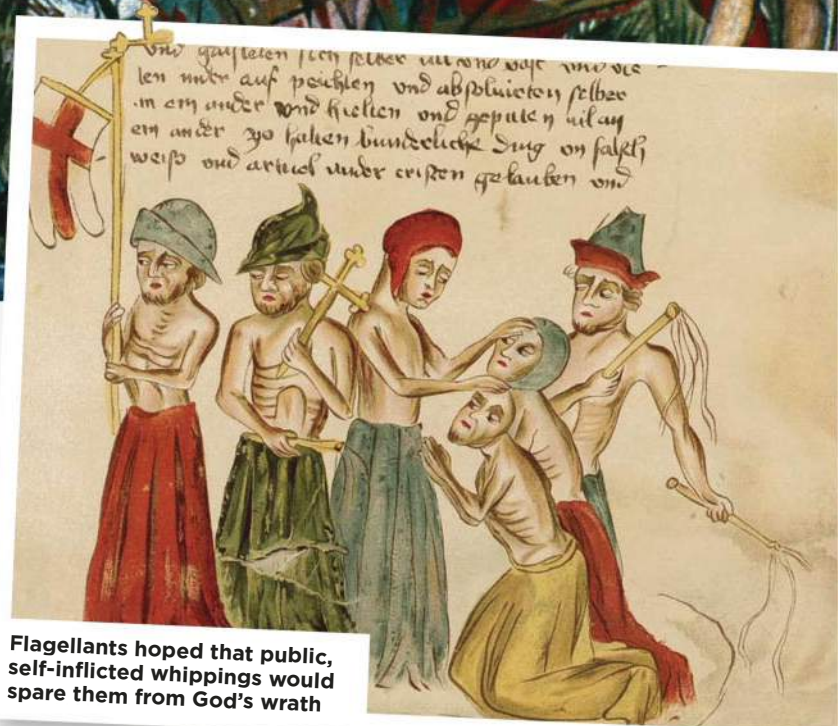 und
len under auf peichten und absoluieten selber
in ein ander und hielten und geputen vil an
ein ander zo halten wunderliche ding on falsch
weiss und cristen gelauben und
Flagellants hoped that public,
self-inflicted whippings would
spare them from God's wrath